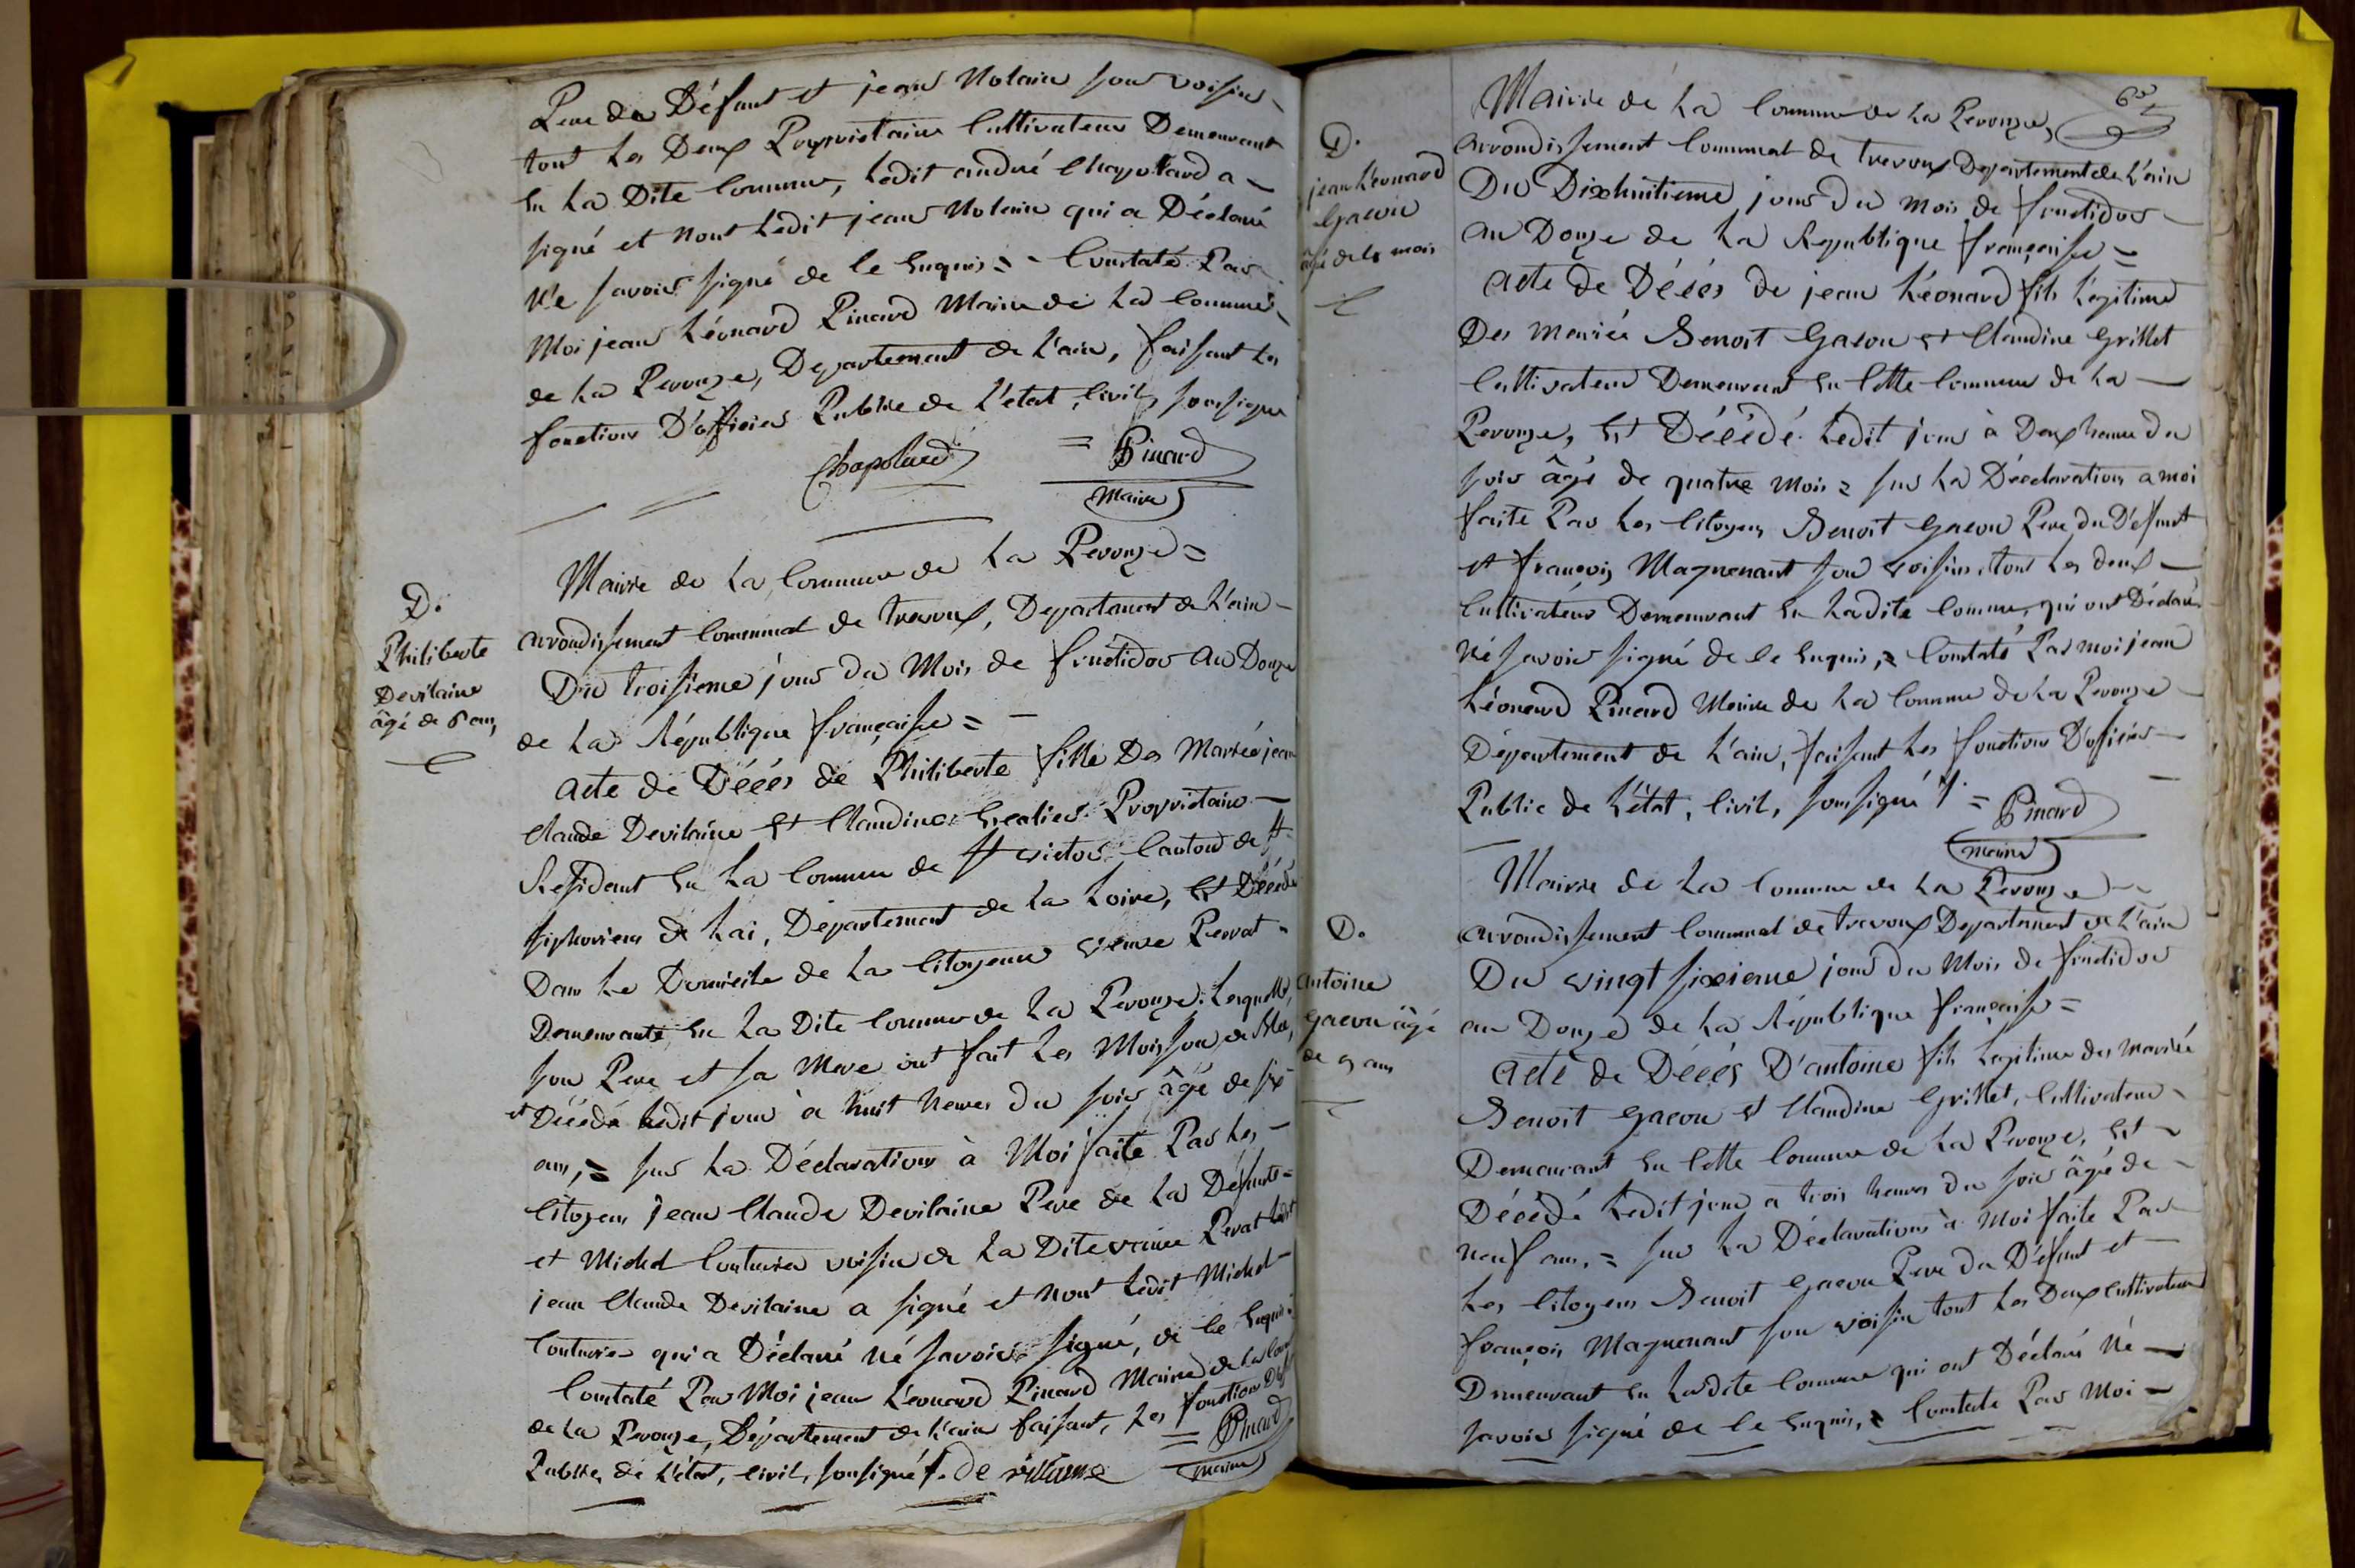 Pere du Défunt et jean Nolain son voisin
tout les Deux Propriétaire Cultivateur Demeurant
En La Dite Commune, Ledit andré Chapolard a
signé et nont Ledit jean Nolain qui a Déclaré
Ne savoir signé de le Enquis = Constaté Par
Moi jean Léonard Pinard Maire de La Commune
de La Perouze, Departement de L'ain, faisant les
fonction D'officier Public de L'etat, Civil, sousigné
Chapolard = Pinard
Maire
D.
Philiberte
Devilaine
âgé de 6 ans,
Mairie de La Commune de La Perouze =
arrondissement Communal de trevoux, Departement de L'ain
Du troisieme jour du Mois de fructidor an Douze
de La République française =
acte de Décés de Philiberte fille Des Mariée jean
Claude Devilaine Et Claudine Propriétaire
Residant En La Commune de St victor Canton de St
siphorien de Lai, Département de la Loire, Est Décédé
Dans Le Domicile de La Citoyenne veuve Perrat
Demeurante En La Dite Commune de La Perouze. Lesquelle,
son Pere et sa Mere ont fait Les Moisson de Blé,
et Décédé Ledit jour à huit heures Du soir âgé de six
ans, = sur La Déclaration à Moi faite Par Les
Citoyens jean Claude Devilaine Pere de La Defunte =
et Michel Couturier voisin de La Dite veuve Perat Ledit
jean Claude Devilaine a signé et Nont Ledit Michel
Couturier qui a Déclaré Né savoir signé, de le Enquis =
Constaté Par Moi jean Léonard Pinard Maire de La Com
de La Perouze, Département de L'ain faisant, Les fonction D'off
Public de L'état, civil, sousigné /. De vilaine = Pinard
maire
D.
jean Léonard
Gacon
âgé de 4 mois
Mairie de La Commune de La Perouze,
arrondissement Communal de trevoux Departement de L'ain
Du Dixhuitieme jour du Mois de fructidor
an Douze de La Republique françaisse =
acte de Décés de jean Léonard fils Légitime
Des Mariée Benoit Gacon et Claudine Grillet
Cultivateur Demeurant En Cette Commune de La
Perouze, Est Décédé Ledit jour à Deux heures du
soir âgé de quatre Mois = sur La Déeclaration a moi
faite Par Les Citoyens Benoit Gacon Pere Du Défunt
et françois Magnenant son voisin, tout Les deux
Cultivateur Demeurant En Ladite Commune, qui ont Déclaré
Né savoir signé de le Enquis, = Constaté Par moi jean
Léonard Pinard Maire de La Commune de La Perouze
Département de L'ain, faisant Les fonction D'oficier
Public de L'état, Civil, sousigné /. = Pinard
maire
D.
antoine
gacon âgé
de 9 ans
Mairie de La Commune de La Perouze
arrondissement Communal de trevoux Departement de L'ain
Du vingt sixieme jour du Mois de fructidor
an Douze de La République françaisse =
acte de Décés D'antoine fils Legitime des Mariée
Benoit Gacon Et Claudine Grillet, Cultivateur
Demeurant En Cette Commune de La Perouze, Est
Décédé Ledit jour a trois heures Du soir âgé de
neuf ans. = sur La Déclaration à Moi faite Par
Les Citoyens Benoit Gacon Pere Du Défunt et
françois Magnenant son voisin tout Les Deux Cultivateur
Demeurant En Ladite Commune qui ont Déclaré Né
savoir signé de le Enquis, = Constaté Par Moi